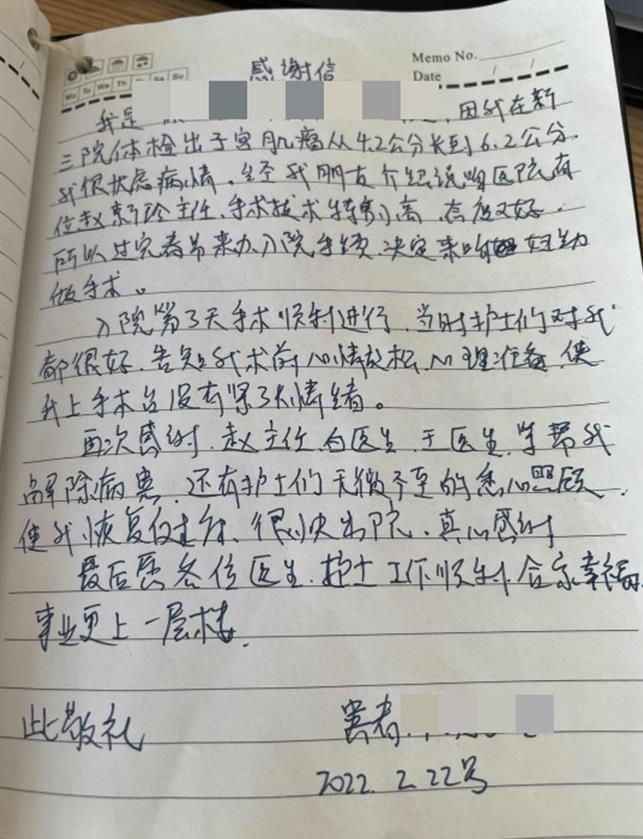 Memo No.
Mo Tu We Th Fr Sa Su
Date / /
感谢信
我是 因我在新
三院体检出子宫肌瘤从4.2公分长到6.2公分.
我很忧虑病情,经我朋友介绍说咱医院有
位赵新玲主任.手术技术特别高 态度又好.
所以过完春节来办入院手续,决定来咱妇幼
做手术。
入院第3天手术顺利进行,当时护士们对我
都很好,告知我术前心情放松,心理准备,使
我上手术台没有紧张情绪。
再次感谢.赵主任.白医生.王医生,帮我
解除病患,还有护士们无微不至的悉心照顾.
使我恢复的,很快出院,真心感谢
最后愿各位医生.护士工作顺利.合家幸福.
事业更上一层楼.
此敬礼
患者:
2022.2.22号